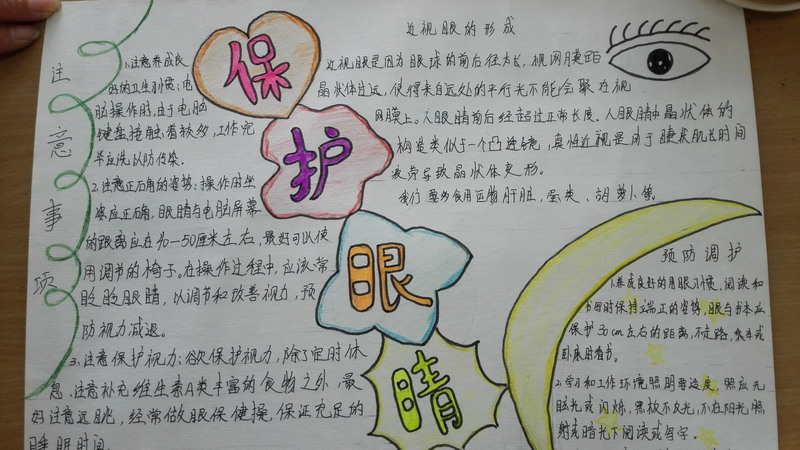 保护眼睛
注意事项
1.注意养成良
好的卫生习惯:电
脑操作时,由于电脑
键盘接触者较多,工作完
毕应洗以防传染.
2.注意正右角的姿势:操作时坐
姿应正确,眼睛与电脑屏幕
的距离应在40—50厘米左右,最好可以使
用调节的椅子。在操作过程中,应该常
眨眨眼睛,以调节和改善视力,预
防视力减退。
3.注意保护视力:欲保护视力,除了定时休
息、注意补充维生素A类丰富的食物之外,最
好注意远眺,经常做眼保健操,保证充足的
睡眠时间.
近视眼的形成
近视眼是因为眼球的前后径太长,视网膜距
晶状体过远,使得来自远处的平行光不能会聚在视
网膜上。人眼睛前后经超过正常长度.人眼睛中晶状体的
构造类似于一个凸透镜,真性近视是由于睫状肌长时间
疲劳导致晶状体变形。
我们要多食用运物肝脏,蛋类、胡萝卜等。
预防调护
1.养成良好的用眼习惯,阅读和
书写时保持端正的姿势,眼与书本应
保护30cm左右的距离,不走路、乘车或
卧床时看书。
2.学习和工作环境照明要适度,照应无
眩光或闪烁,黑板不反光,不在阳光照
射或暗光下阅读或写字。